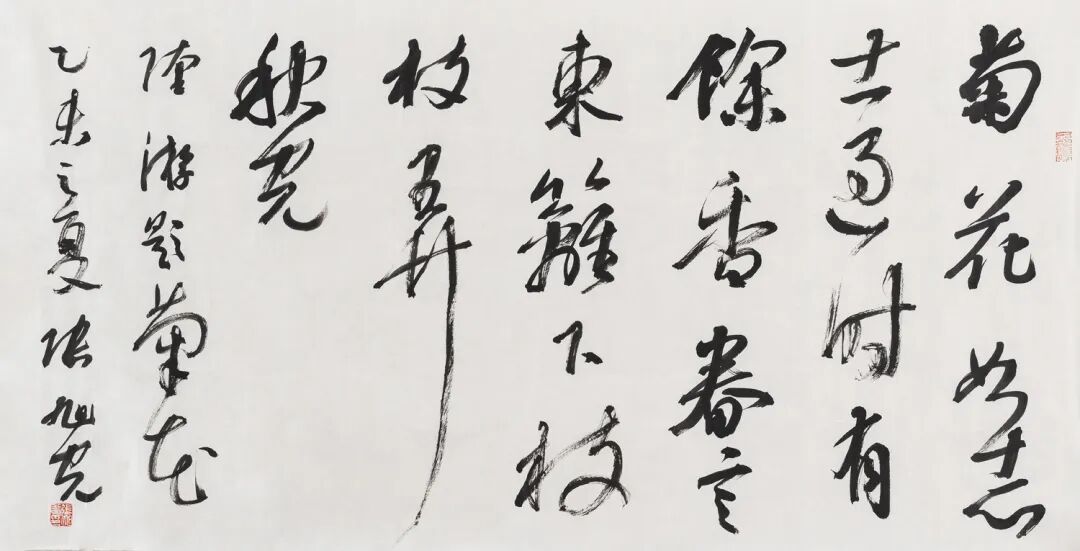 菊花如志
士過時有
餘香眷言
東籬下枝
枝弄
秋光
陸游題菊花
乙未之夏張旭光